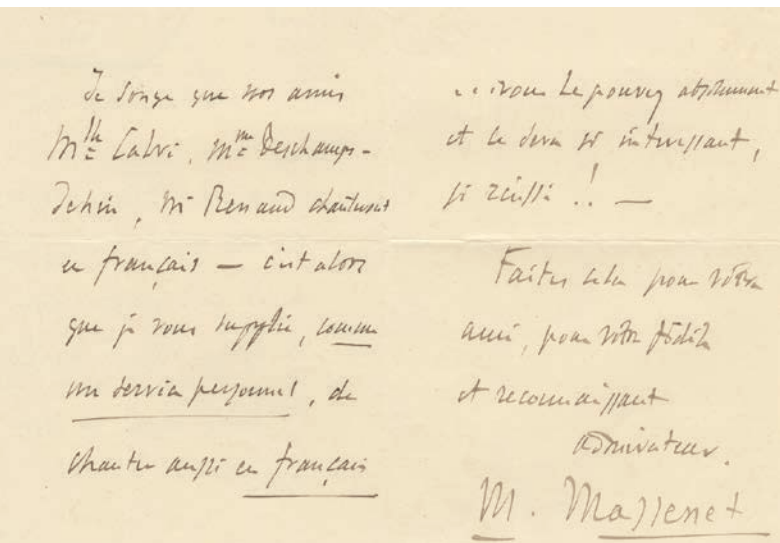 Je songe que nos amis
Mlle Calvé, Mme Deschamps-
Jehin, Mr Renaud chanteront
en français — c'est alors
que je vous supplie, comme
un service personnel, de
chanter aussi en français
... vous le pouvez absolument
et ce sera si intéressant,
si réussi !! —
Faites cela pour votre
ami, pour votre fidèle
et reconnaissant
admirateur.
M. Massenet